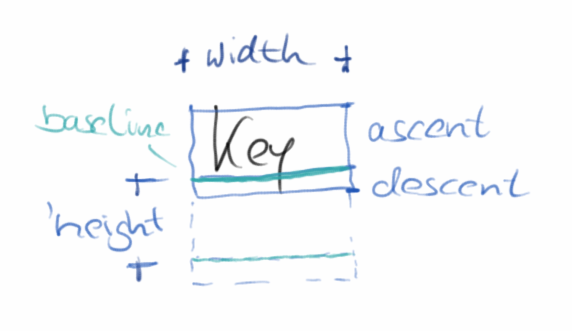 width
baseline
Key
ascent
descent
'height